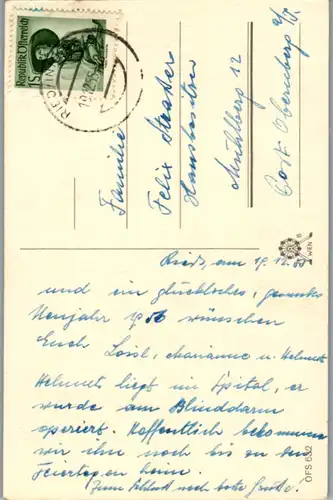 Republik Österreich
1S
RIED IM
19.12.55
Familie
Felix
Hausbesitzer
Mühlberg 12
Post Obernberg a/J.
Ried, am 19.12.55
und ein glückliches, gesundes
Neujahr 1956 wünschen
Euch Loisl, Marianne u. Helmut
Helmut liegt im Spital, er
wurde am Blinddarm
operiert. Hoffentlich bekommen
wir ihn noch bis zu den
Feiertagen heim.
Zum Schluß noch beste Grüße.
WIEN
ÖFS 632